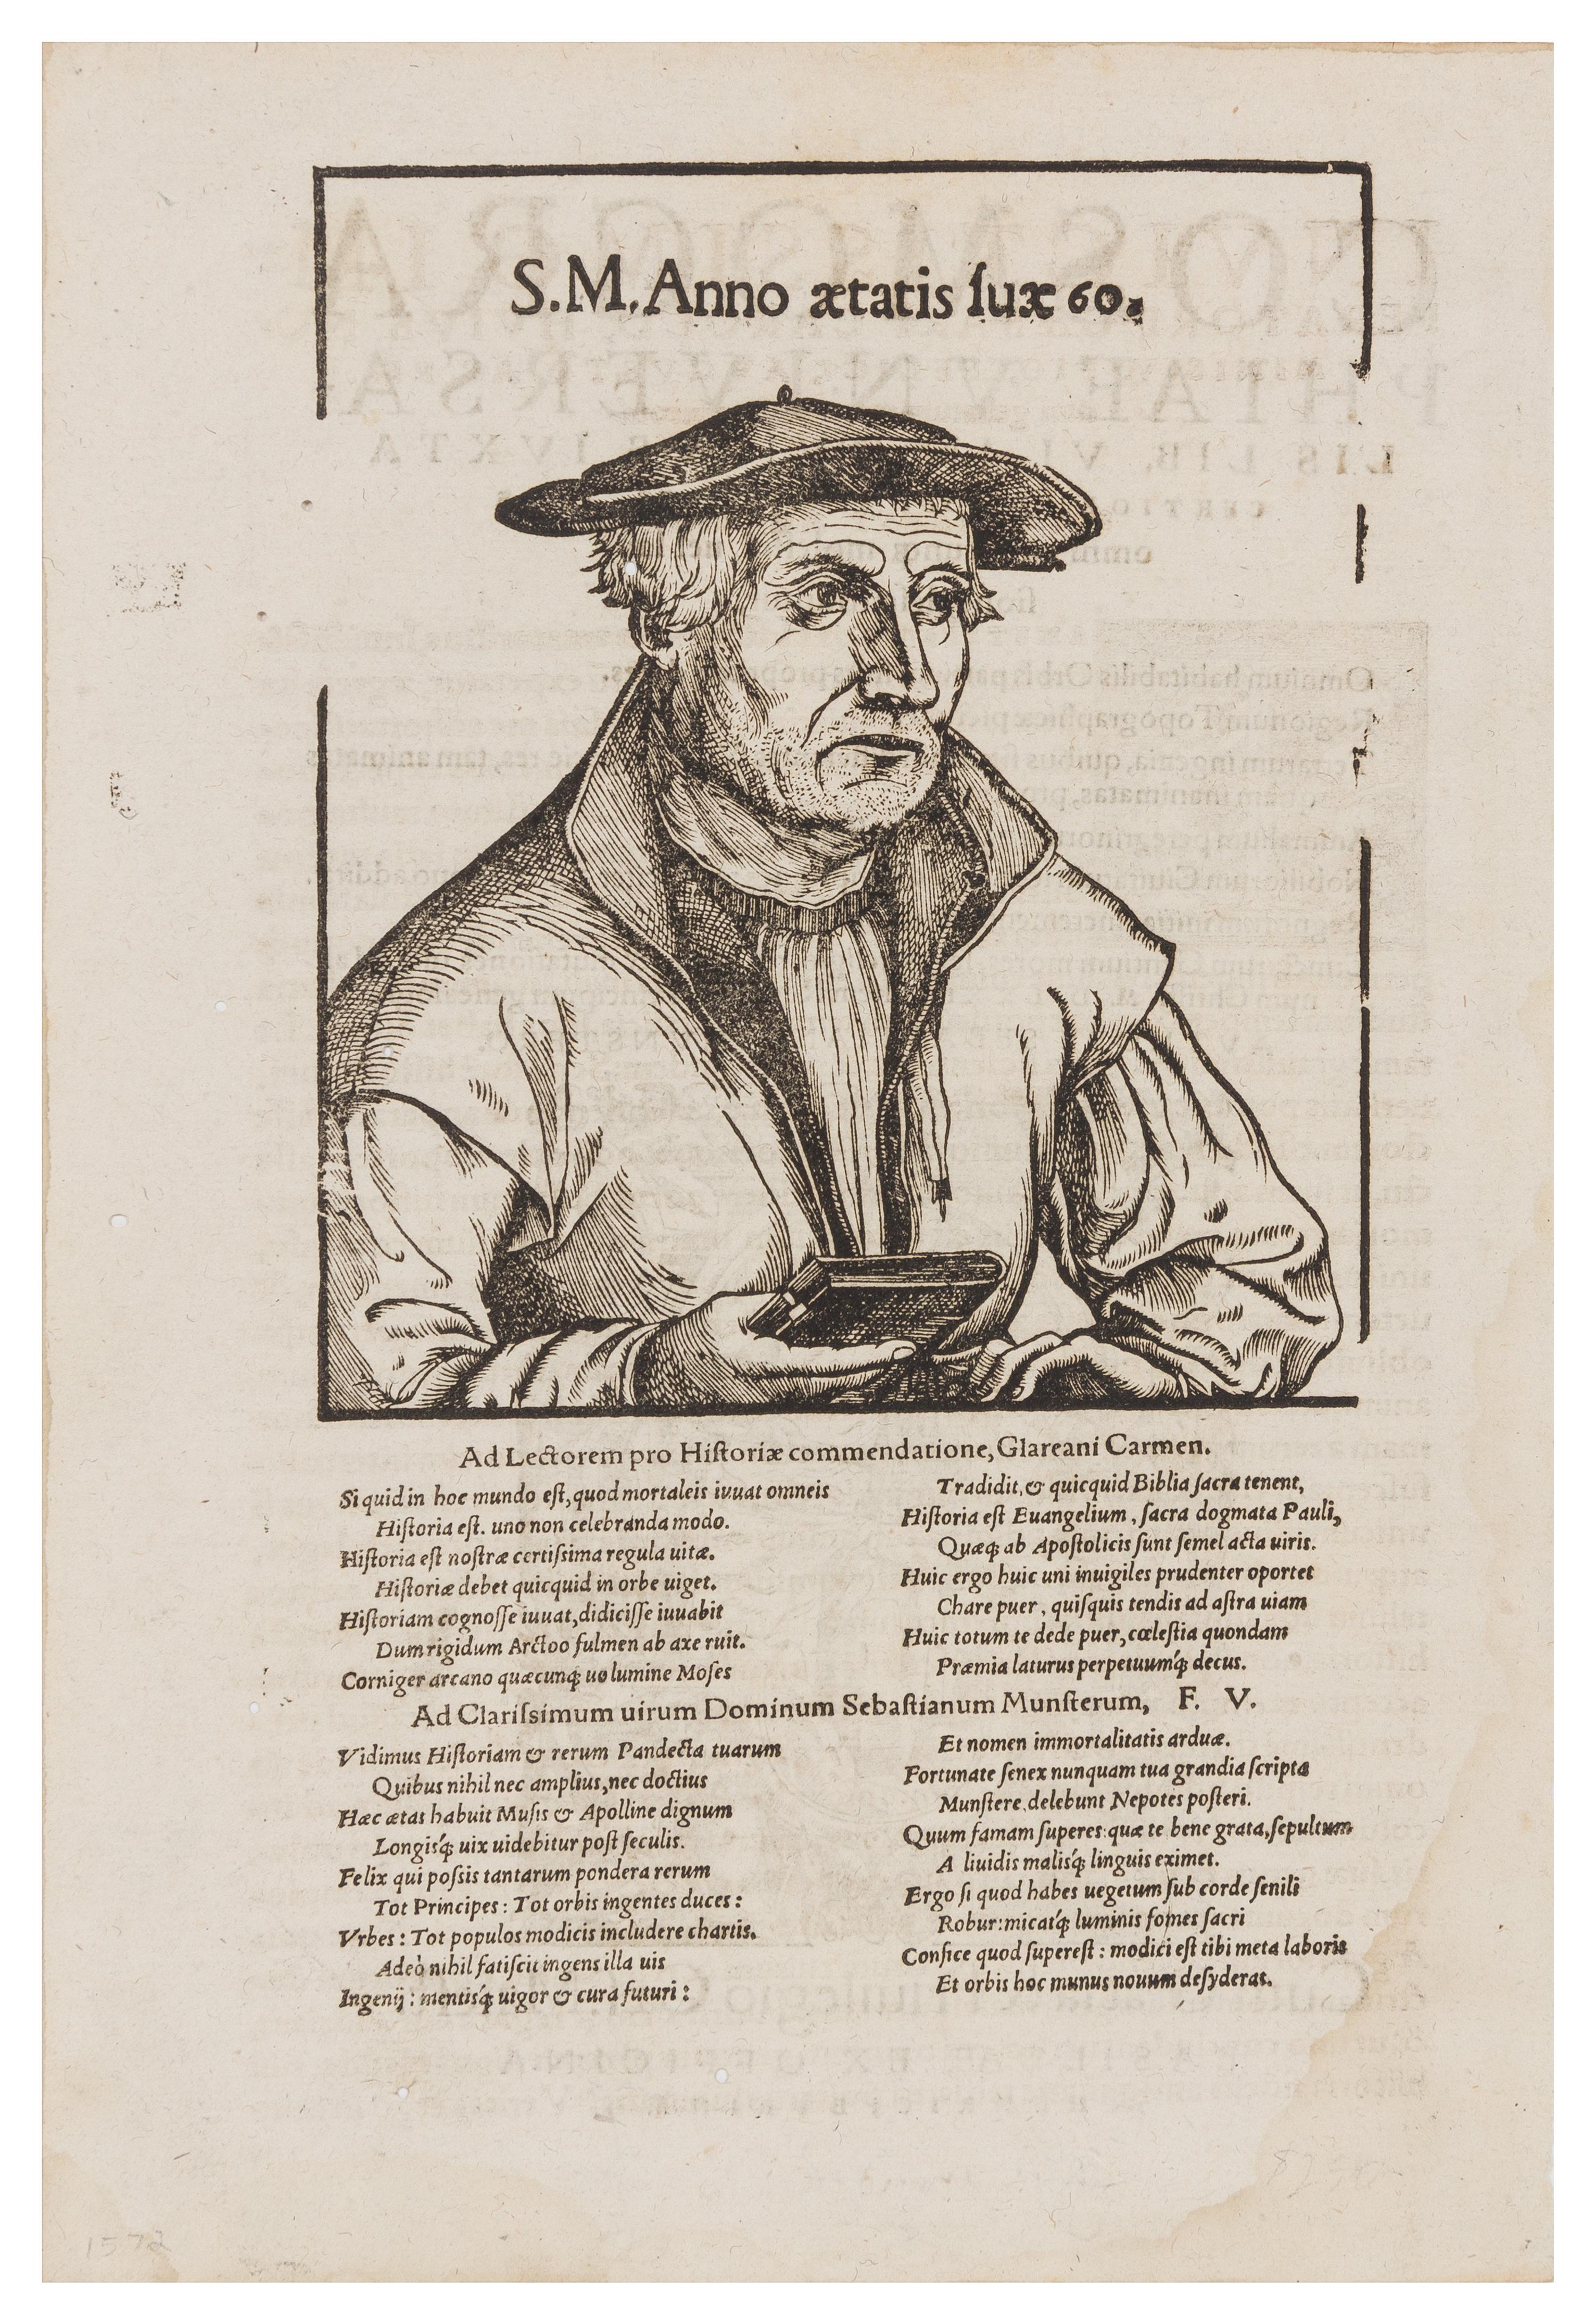 S.M. Anno ætatis ſuæ 60.
Ad Lectorem pro Hiſtoriæ commendatione, Glareani Carmen.
Si quid in hoc mundo eſt, quod mortaleis iuuat omneis
Hiſtoria eſt. uno non celebranda modo.
Hiſtoria eſt noſtræ certiſsima regula uitæ.
Hiſtoriæ debet quicquid in orbe uiget.
Hiſtoriam cognoſſe iuuat, didiciſſe iuuabit
Dum rigidum Arctoo fulmen ab axe ruit.
Corniger arcano quæcunq; uolumine Moſes
Tradidit, & quicquid Biblia ſacra tenent,
Hiſtoria eſt Euangelium, ſacra dogmata Pauli,
Quæq; ab Apoſtolicis ſunt ſemel acta uiris.
Huic ergo huic uni inuigiles prudenter oportet
Chare puer, quiſquis tendis ad aſtra uiam
Huic totum te dede puer, cœleſtia quondam
Præmia laturus perpetuumq́; decus.
Ad Clariſsimum uirum Dominum Sebaſtianum Munſterum, F. V.
Vidimus Hiſtoriam & rerum Pandecta tuarum
Quibus nihil nec amplius, nec doctius
Hæc ætas habuit Muſis & Apolline dignum
Longisq́; uix uidebitur poſt ſeculis.
Felix qui poſsis tantarum pondera rerum
Tot Principes: Tot orbis ingentes duces:
Vrbes: Tot populos modicis includere chartis.
Adeò nihil fatiſcit ingens illa uis
Ingenij: mentisq́; uigor & cura futuri:
Et nomen immortalitatis arduæ.
Fortunate ſenex nunquam tua grandia ſcripta
Munſtere, delebunt Nepotes poſteri.
Quum famam ſuperes: quæ te bene grata, ſepultum
A liuidis malisq́; linguis eximet.
Ergo ſi quod habes uegetum ſub corde ſenili
Robur: micatq́; luminis fomes ſacri
Confice quod ſupereſt: modici eſt tibi meta laboris
Et orbis hoc munus nouum deſyderat.
1572